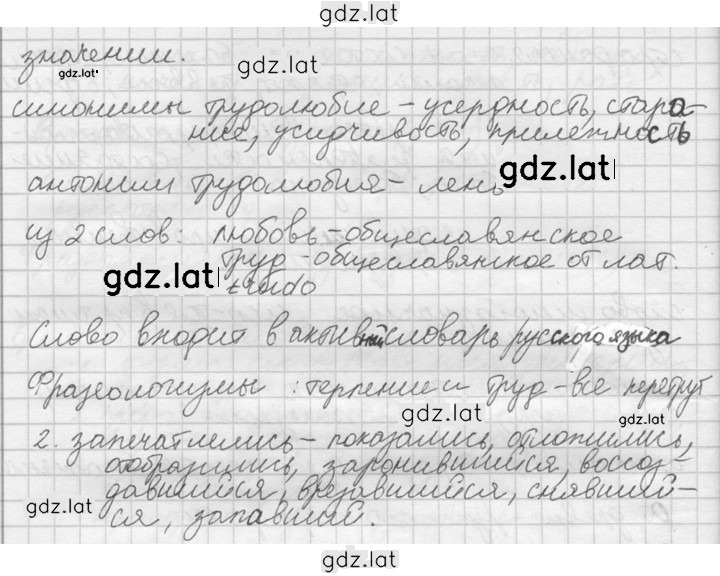 gdz.lat
значении.
gdz.lat
gdz.lat
синонимы трудолюбие – усердность, стара-
ние, усидчивость, прилежность
gdz.lat
антоним трудолюбия – лень
из 2 слов: любовь – общеславянское
труд – общеславянское от лат.
gdz.lat
trudo
Слово входит в активный словарь русского языка
Фразеологизмы: терпение и труд – все перетрут
gdz.lat
gdz.lat
2. запечатлелись – показались, отложились,
отобразились, заронившийся, воссоз-
давшийся, врезавшийся, снявший-
gdz.lat
ся, запавший.
gdz.lat